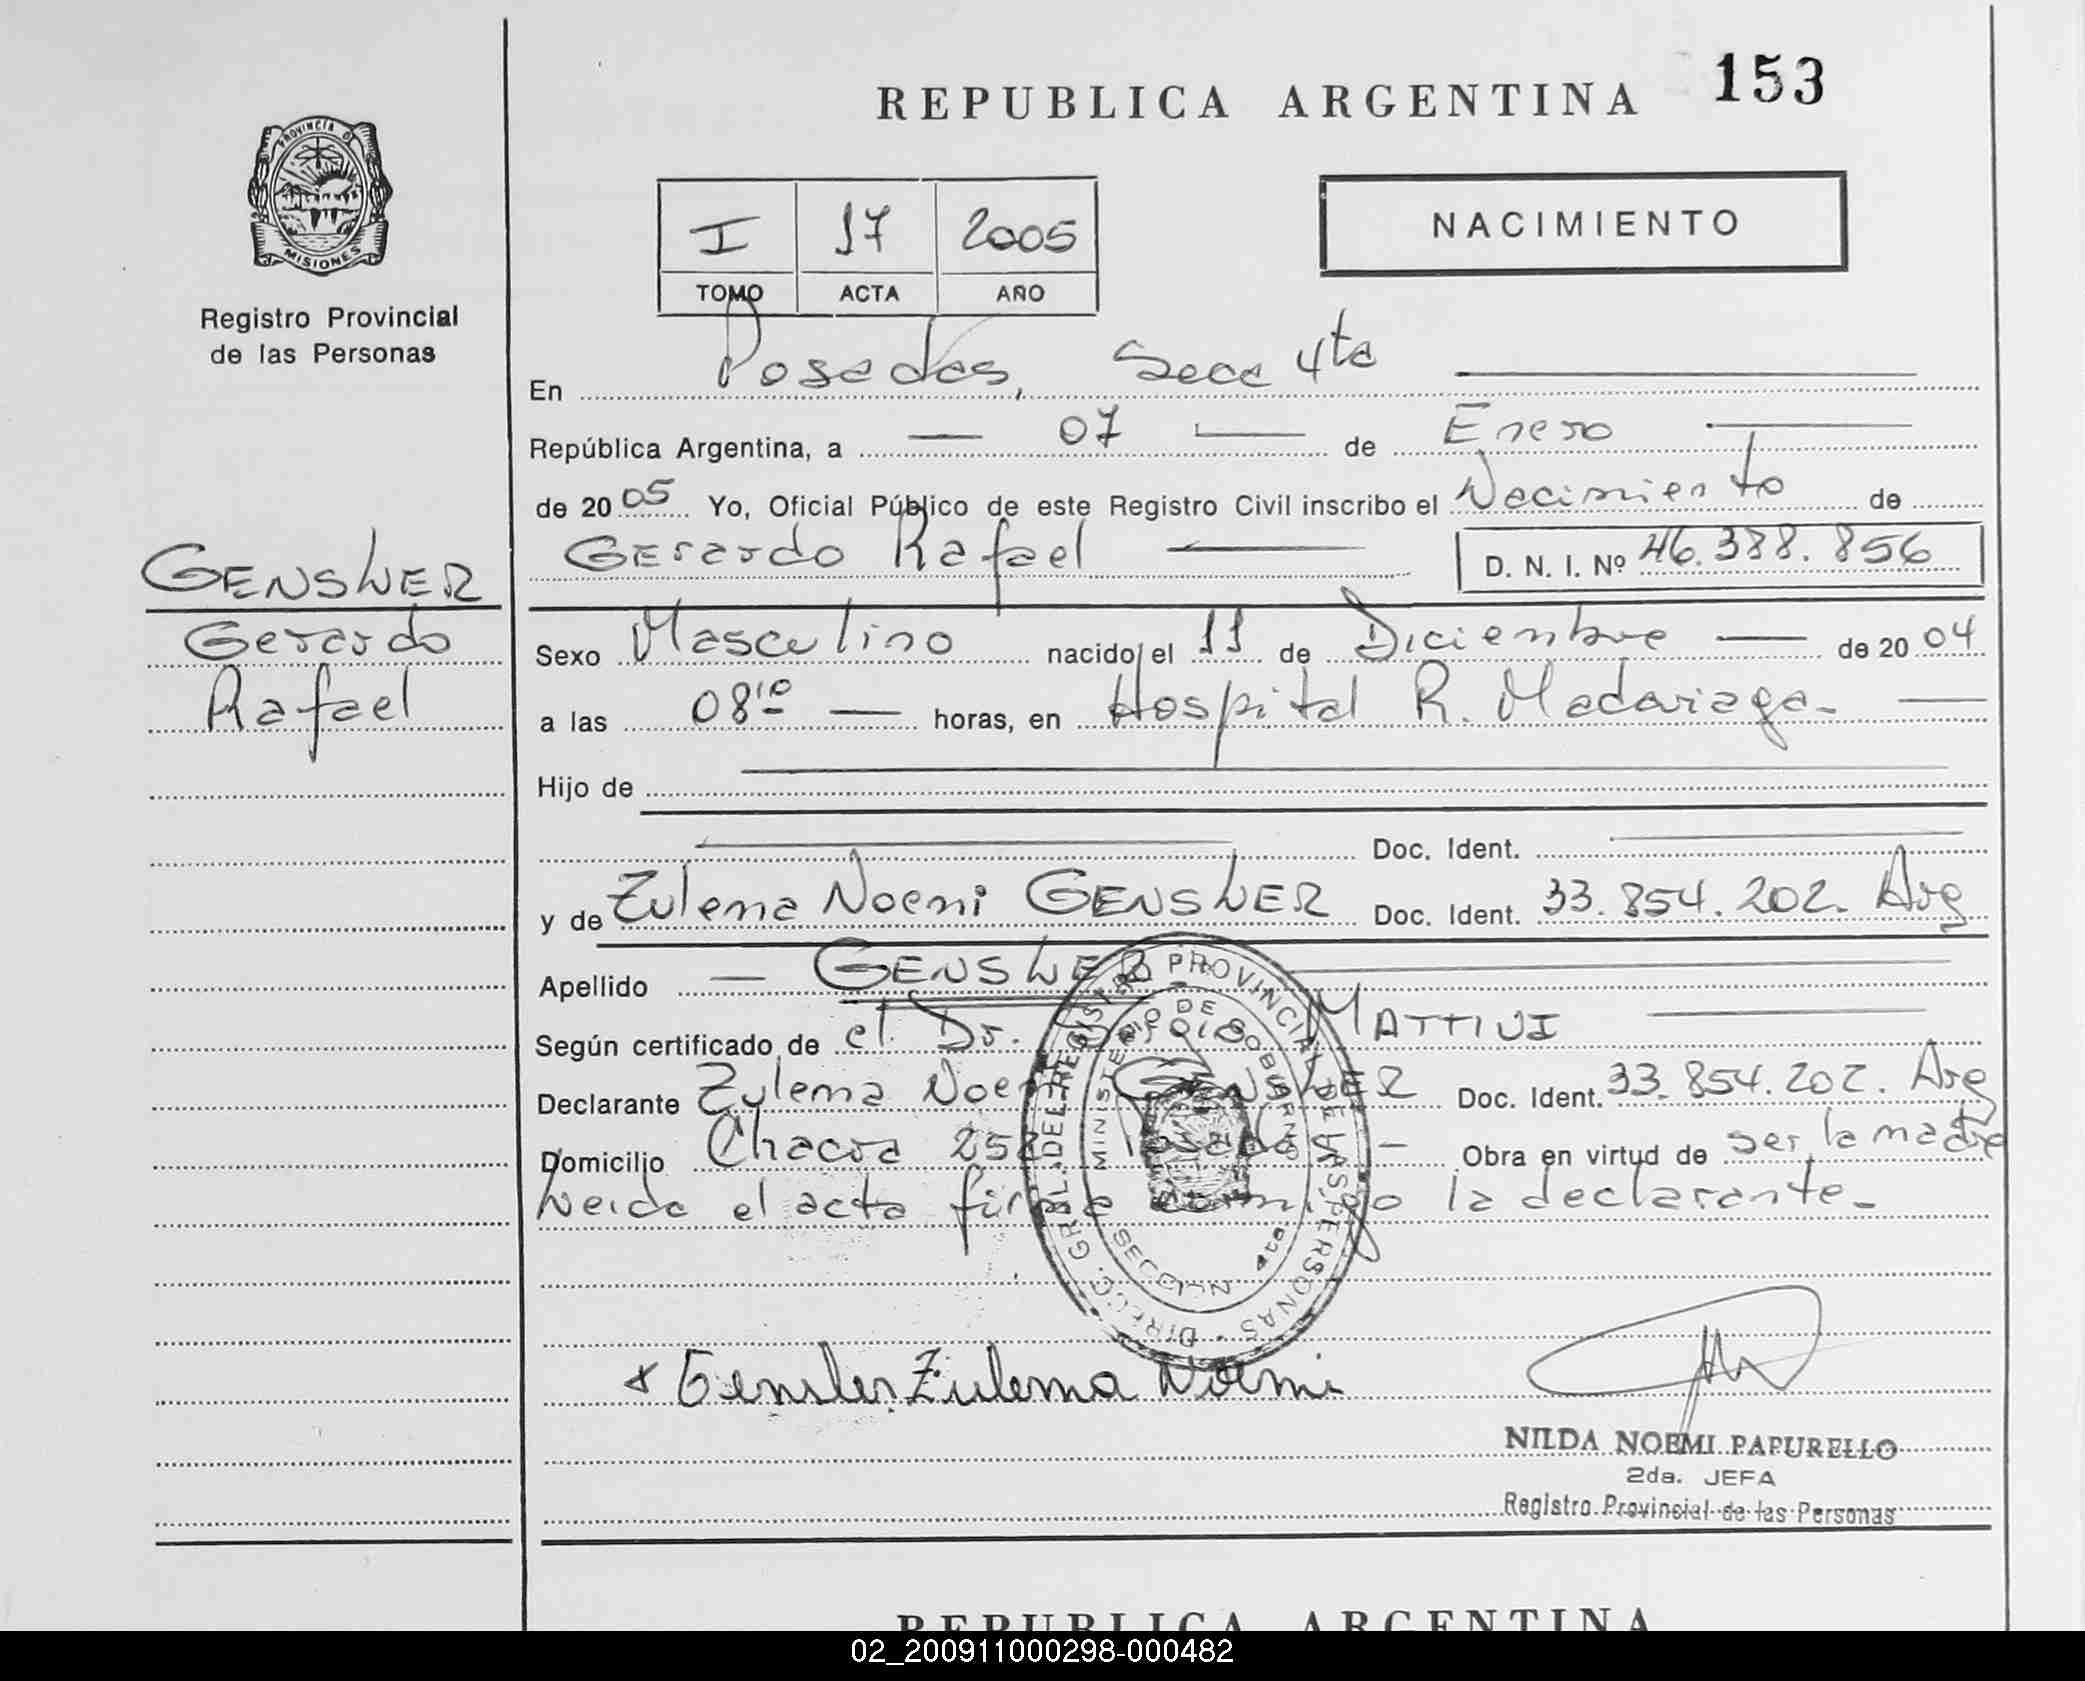 REPUBLICA ARGENTINA 153
PROVINCIA DE
MISIONES
Registro Provincial
de las Personas
I 17 2005
TOMO ACTA AÑO
NACIMIENTO
En Posadas, Secc 4ta
República Argentina, a 07 de Enero
de 2005 Yo, Oficial Público de este Registro Civil inscribo el Nacimiento de
Gerardo Rafael D. N. I. Nº 46.388.856
GENSLER
Gerardo
Rafael
Sexo Masculino nacido el 11 de Diciembre de 2004
a las 08:10 horas, en Hospital R. Madariaga.
Hijo de
Doc. Ident.
y de Zulema Noemi GENSLER Doc. Ident. 33.854.202. Arg
Apellido GENSLER
Según certificado de el Dr. MATTIUI
Declarante Zulema Noemi GENSLER Doc. Ident. 33.854.202. Arg
Domicilio Chacra 252 Posadas - Obra en virtud de ser la madre
Leida el acta firma conmigo la declarante-
DIRECC. GRAL. DEL REGISTRO PROVINCIAL DE LAS PERSONAS
MINISTERIO DE GOBIERNO
MISIONES
x Gensler Zulema Noemi
NILDA NOEMI PAPURELLO
2da. JEFA
Registro Provincial de las Personas
REPUBLICA ARGENTINA
02_200911000298-000482